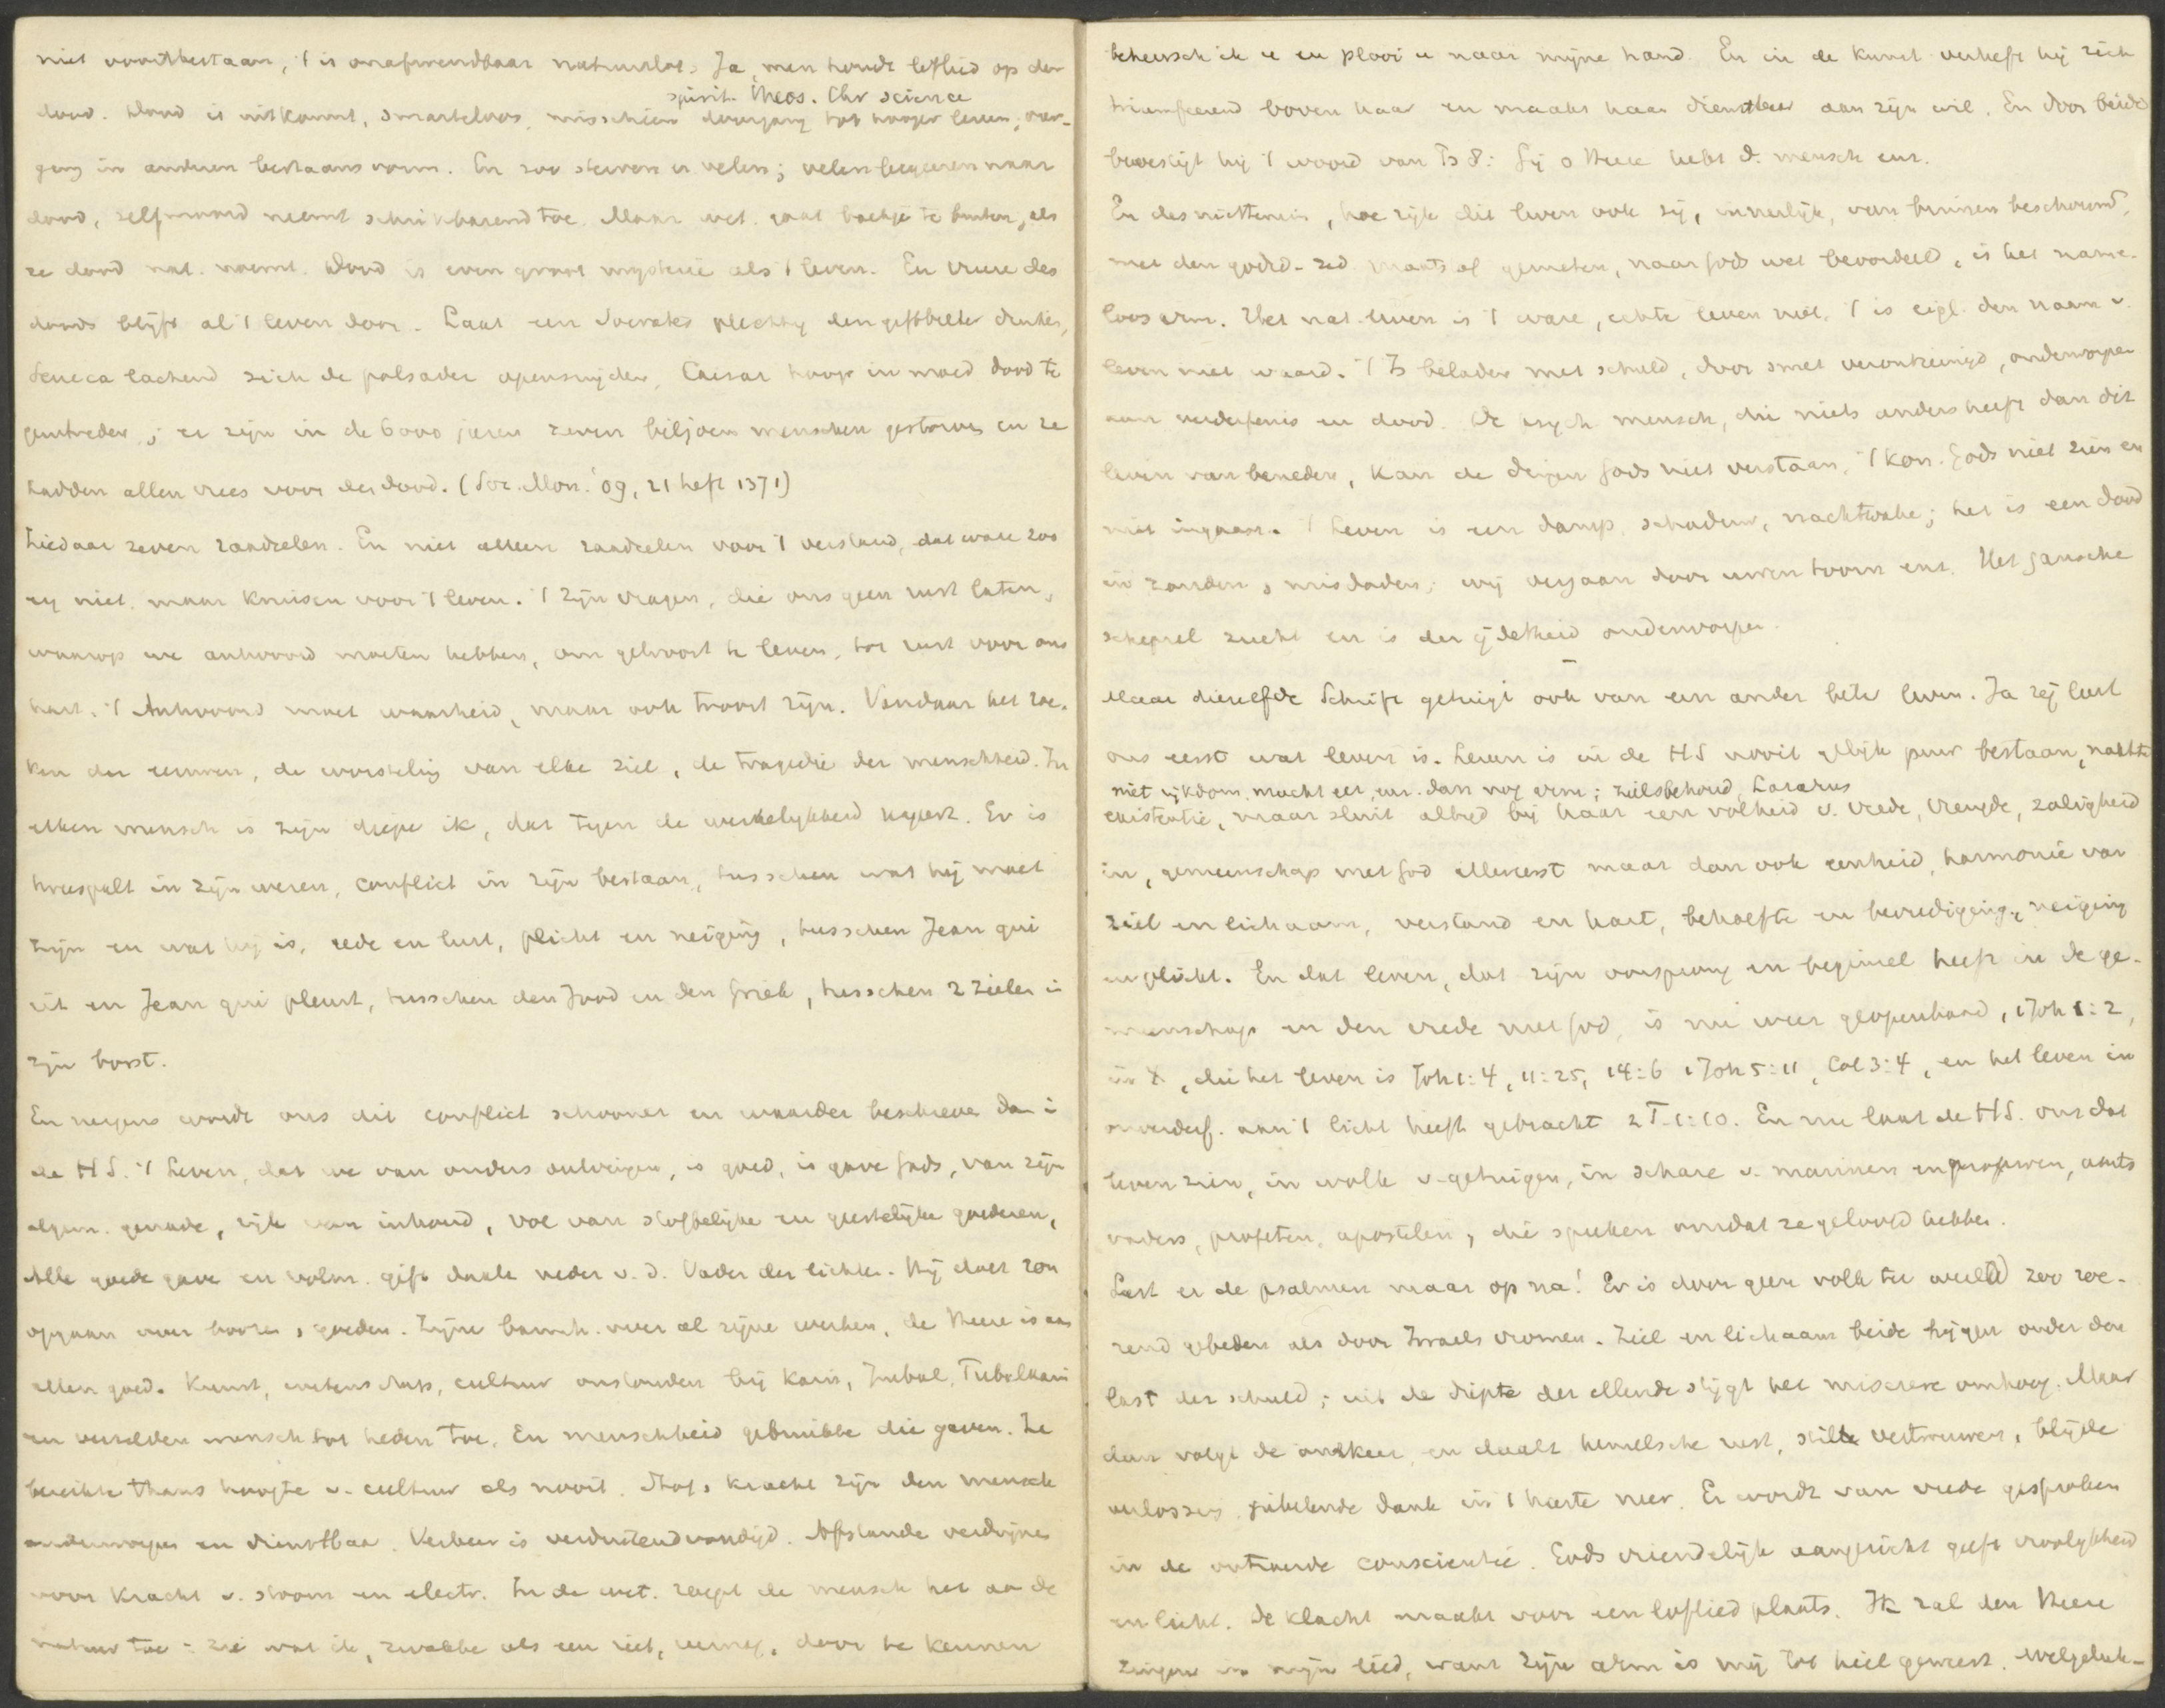 niet voortbestaan, 't is onafwendbaar natuurlot. Ja, men houdt loflied op den
spirit. Theos. Chr science
dood. Dood is uitkomst, smarteloos, misschien doorgang tot hooger leven, over-
gang in anderen bestaansvorm. En zoo sterven er velen; velen begeeren naar
dood, zelfmoord neemt schrikbarend toe. Maar wet. gaat boekje te buiten, als
ze dood nat. noemt. Dood is even groot mysterie als 't leven. En vreeze des
doods blijft al 't leven door. Laat een Socrates plechtig den gifbeker drinken,
Seneca lachend zich de polsader opensnijden, Caesar hoog in moed dood te
gemoettreden; er zijn in de 6000 jaren zeven biljoen menschen gestorven en ze
hadden allen vrees voor den dood. (Soc. Mon. '09, 21 heft 1371)
Ziedaar zeven raadselen. En niet alleen raadselen voor 't verstand, dat ware zoo
erg niet, maar kruisen voor 't leven. 't Zijn vragen, die ons geen rust laten,
waarop we antwoord moeten hebben, om getroost te leven, tot rust voor ons
hart. 't Antwoord moet waarheid, maar ook troost zijn. Vandaar het zoe-
ken der eeuwen, de worsteling van elke ziel, de tragedie der menschheid. In
elken mensch is zijn diepe ik, dat tegen de werkelijkheid reageert. Er is
tweespalt in zijn wezen, conflict in zijn bestaan, tusschen wat hij moet
zijn en wat hij is, rede en lust, plicht en neiging, tusschen Jean qui
rit en Jean qui pleurt, tusschen den Jood en den Griek, tusschen 2 zielen in
zijn borst.
En nergens wordt ons dit conflict schooner en waarder beschreven dan i
de HS. 't Leven, dat we van ouders ontvingen, is goed, is gave Gods, van zijn
algem. genade, rijk van inhoud, vol van stoffelijke en geestelijke goederen,
Alle goede gave en volm. gift daalt neder v. d. Vader der lichten. Hij doet zon
opgaan over boozen, goeden. Zijne barmh. over al zijne werken, de Heere is aan
allen goed. Kunst, wetenschap, cultuur ontstonden bij Kain, Jubal, Tubalkain
en verzelden mensch tot heden toe. En menschheid gebruikte die gaven. Ze
bereikte thans hoogte v. cultuur als nooit. Stof, kracht zijn den mensch
onderworpen en dienstbaar. Verkeer is verduizendvoudigd. Afstanden verdwijnen
voor kracht v. stoom en electr. In de wet. roept de mensch het aan de
natuur toe: zie wat ik, zwakke als een riet, vermag, door te kennen
beheersch ik u en plooi u naar mijne hand. En in de kunst verheft hij zich
triumfeerend boven haar en maakt haar dienstbaar aan zijn wil. En door beide
bevestigt hij 't woord van Ps 8: Gij o Heere hebt d. mensch enz.
En desniettemin, hoe rijk dit leven ook zij, innerlijk, van binnen beschouwd,
met den godd.- zed maatstaf gemeten, naar Gods wet beoordeeld, is het name-
loos arm. Het nat. leven is 't ware, echte leven niet, 't is eigl. den naam v.
leven niet waard. 't Is beladen met schuld, door smet verontreinigd, onderworpen
aan verderfenis en dood. De psych. mensch, die niets anders heeft dan dit
leven van beneden, kan de dingen Gods niet verstaan, 't kon. Gods niet zien en
niet ingaan. 't Leven is een damp, schaduw, nachtwake; het is een dood
in zonden, misdaden; wij vergaan door uwen toorn enz. Het gansche
schepsel zucht en is der ijdelheid onderworpen.
Maar diezelfde Schrift getuigt ook van een ander beter leven. Ja zij leert
ons eerst wat leven is. Leven is in de HS nooit gelijk puur bestaan, nakte
niet rijkdom, macht eer, enz. dan nog arm; zielsbehoud, Lazarus
existentie, maar sluit altijd bij haar een volheid v. vrede, vreugde, zaligheid
in, gemeenschap met God allereerst maar dan ook eenheid, harmonie van
ziel en lichaam, verstand en hart, behoefte en bevrediging, neiging
en plicht. En dat leven, dat zijn oorsprong en beginsel heeft in de ge-
meenschap en den vrede met God, is nu weer geopenbaard, 1 Joh 1:2,
in X, die het leven is Joh 1:4, 11:25, 14:6 1 Joh 5:11, Col 3:4, en het leven in
onverderf. aan 't licht heeft gebracht 2 T. 1:10. En nu laat de HS. ons dat
leven zien, in wolk v. getuigen, in schare v. mannen en vrouwen, aarts
vaders, profeten, apostelen, die spreken omdat ze geloofd hebben.
Leest er de psalmen maar op na! Er is door geen volk ter wereld zoo roe-
rend gebeden als door Israels vromen. Ziel en lichaam beide hijgen onder den
last der schuld; uit de diepte der ellende stijgt het miserere omhoog. Maar
dan volgt de omkeer, en daalt hemelsche rust, stille vertrouwen, blijde
verlossing, jubelende dank in 't harte neer. Er wordt van vrede gesproken
in de ontroerde conscientie. Gods vriendelijk aangezicht geeft vroolijkheid
en licht. De klacht maakt voor een loflied plaats. Ik zal den Heere
zingen in mijn lied, want zijn arm is mij tot heil geweest. Welgeluk-